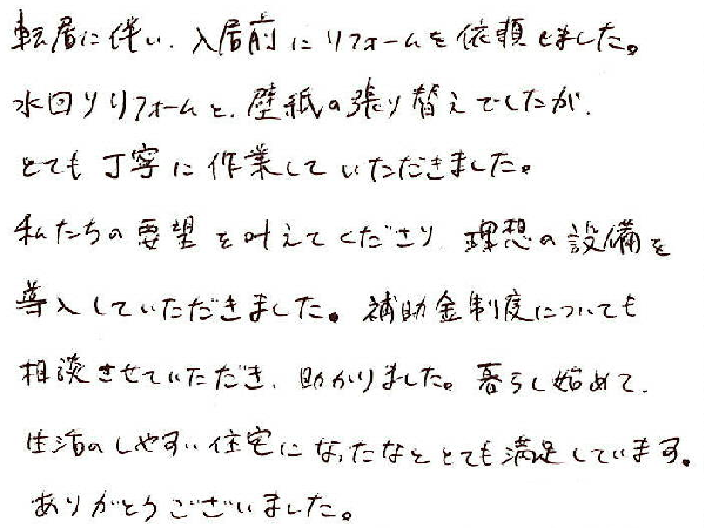 転居に伴い、入居前にリフォームを依頼しました。
水回りリフォームと、壁紙の張り替えでしたが、
とても丁寧に作業していただきました。
私たちの要望を叶えてくださり、理想の設備を
導入していただきました。補助金制度についても
相談させていただき、助かりました。暮らし始めて、
生活のしやすい住宅になったなととても満足しています。
ありがとうございました。